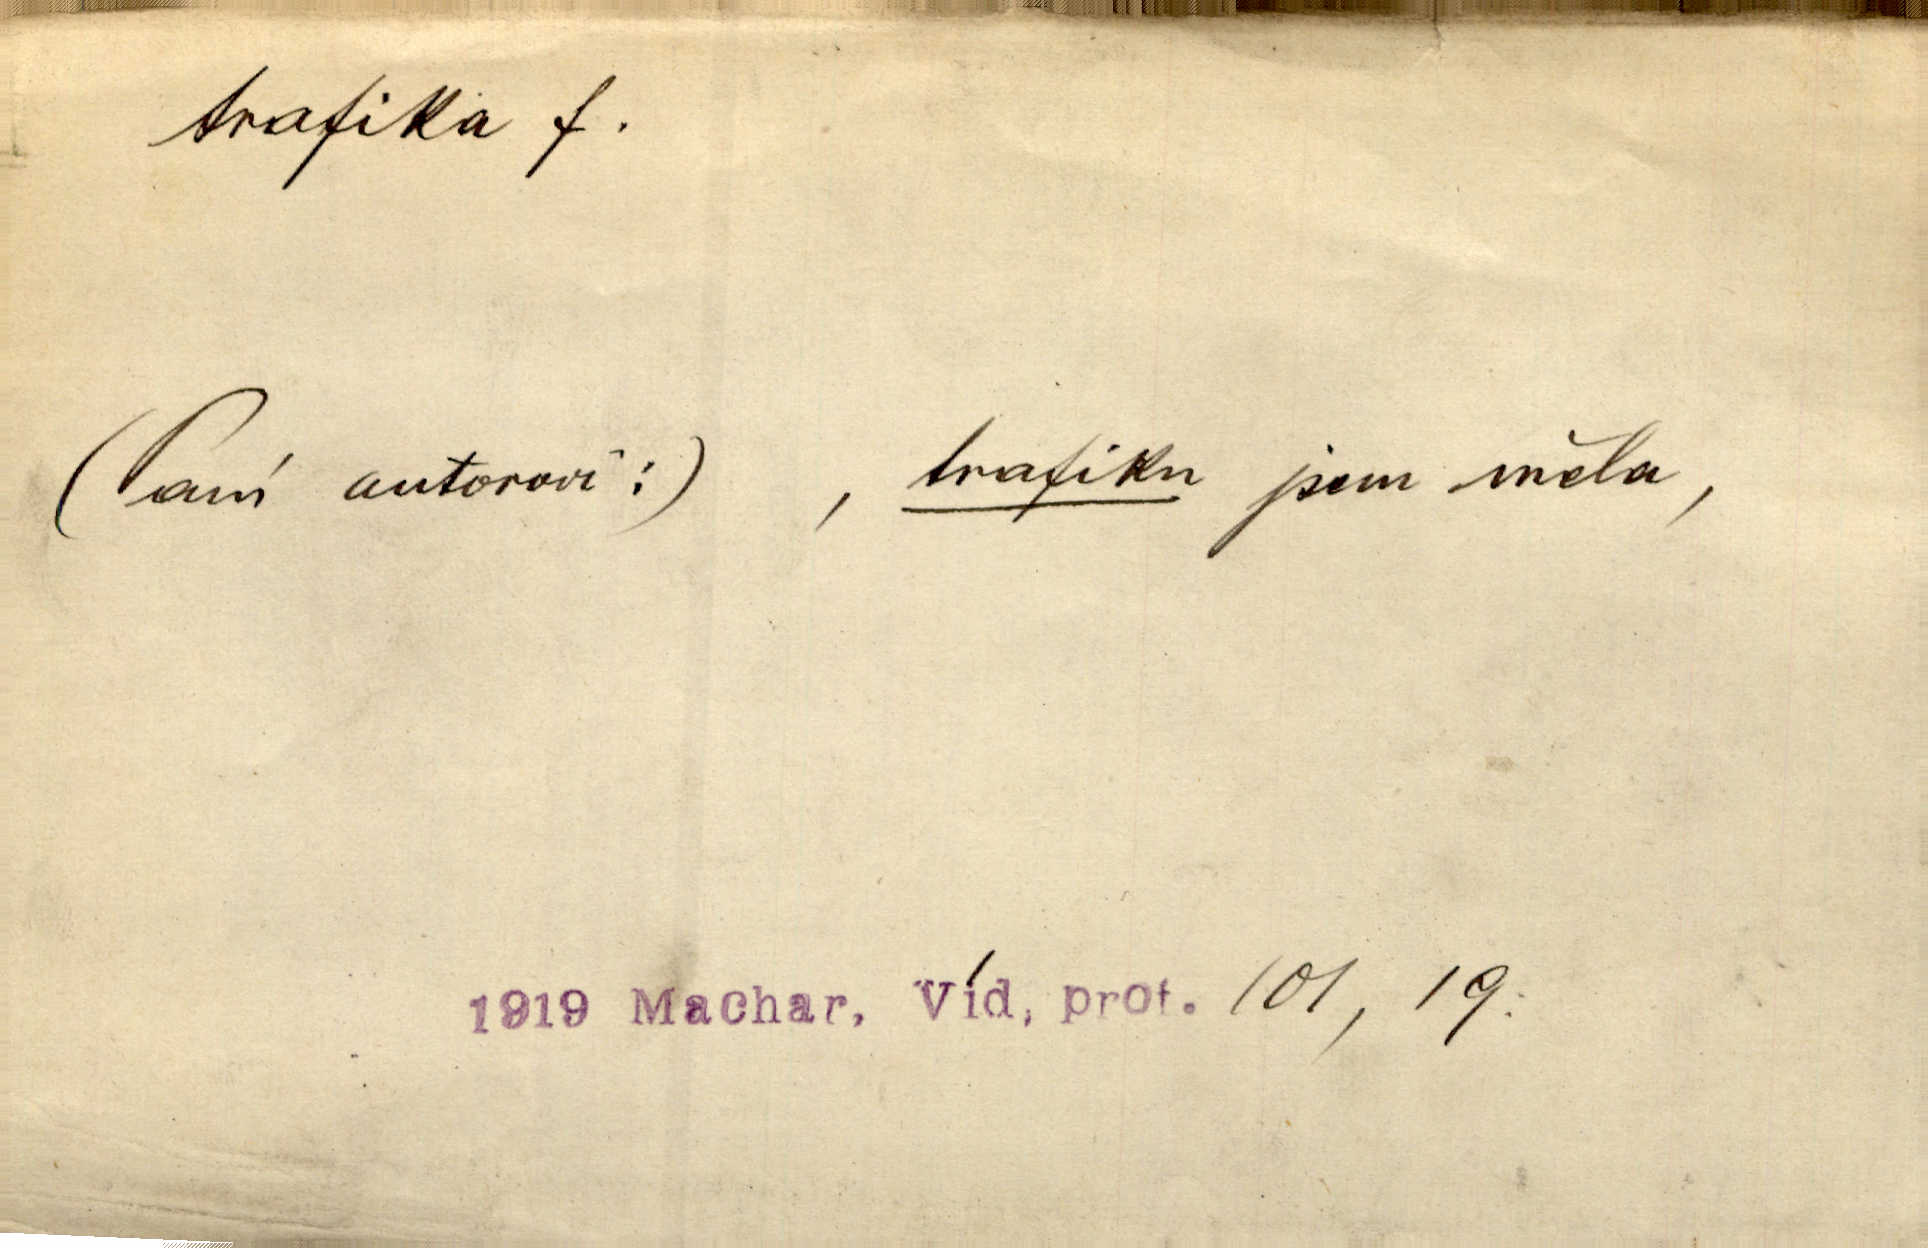 trafika f.
(Paní autorovi:) , trafiku jsem měla,
1919 Machar, Víd, prot. 101, 19.